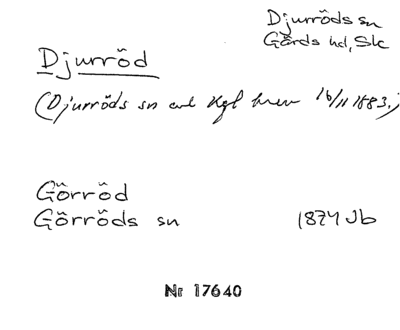 Djurröds sn
Gärds hd, Skc
Djurröd
(Djurröds sn enl Kgl brev 16/11 1883.)
Görröd
Görröds sn 1874 Jb
Nr 17640